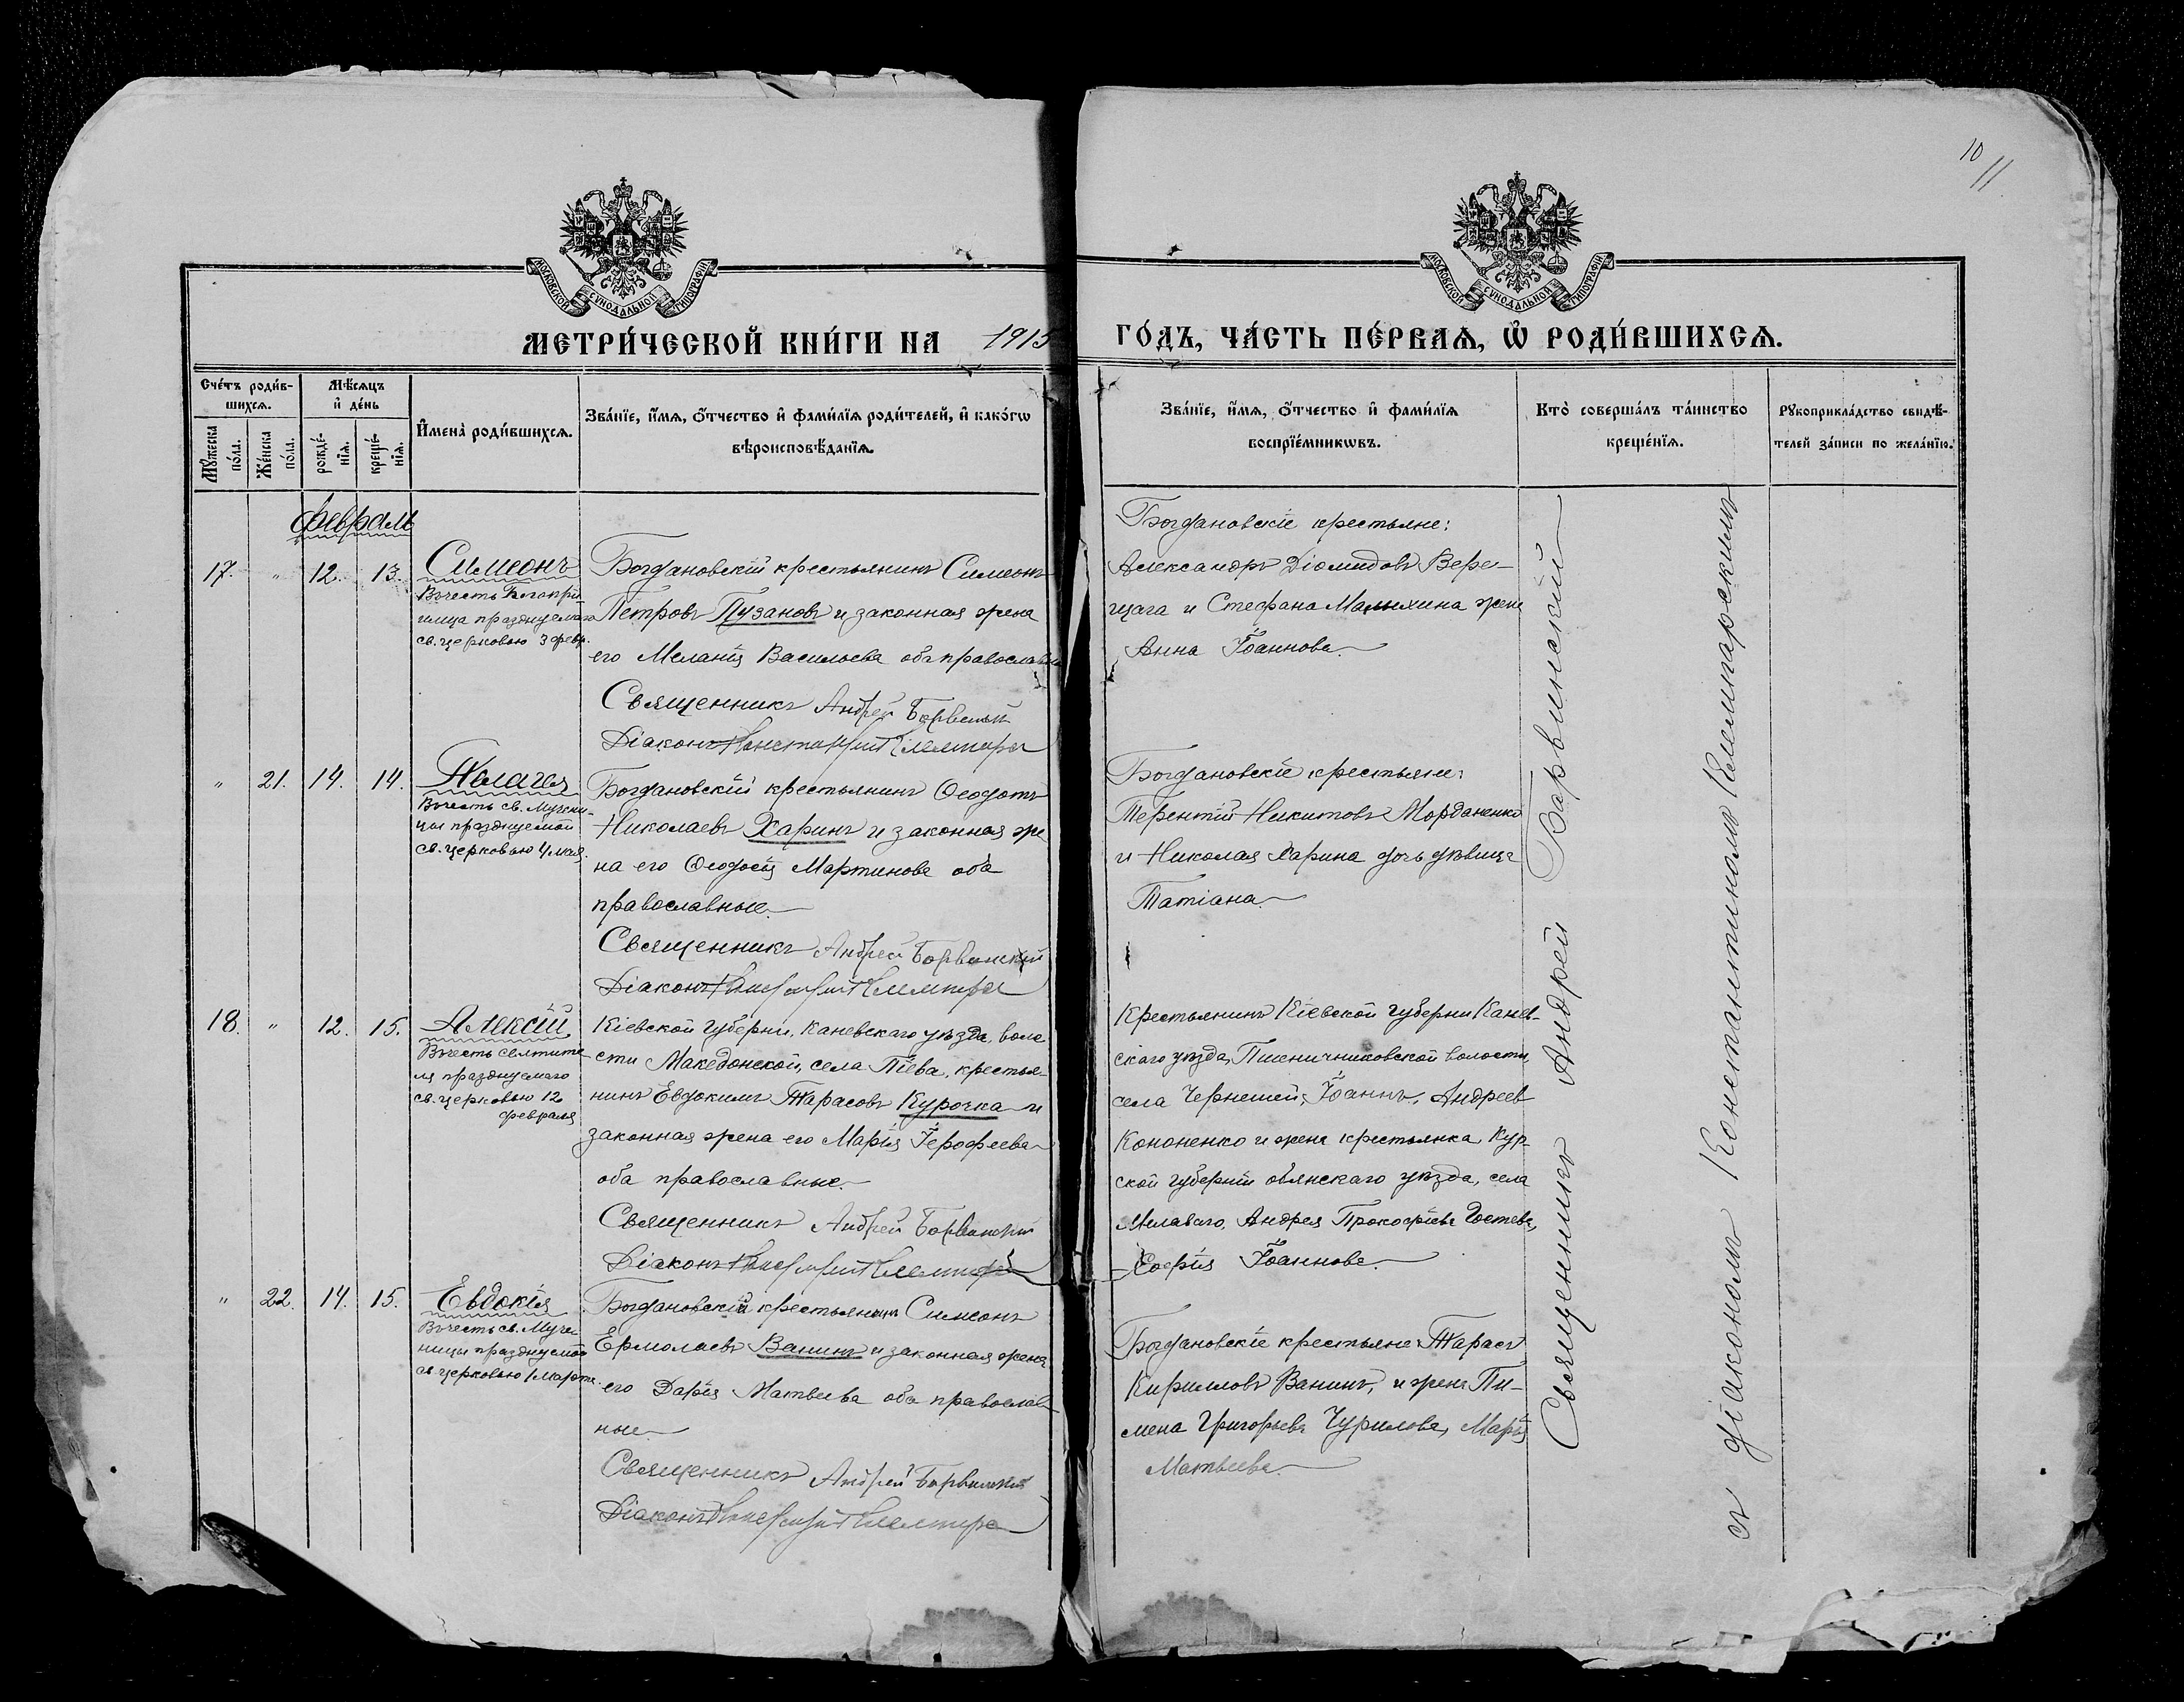 10
11
МОСКОВСКОЙ СУНОДАЛЬНОЙ ТИПОГРАФІИ
МОСКОВСКОЙ СУНОДАЛЬНОЙ ТИПОГРАФІИ
МЕТРИ́ЧЕСКОЙ КНИ́ГИ НА 1915
ГО́ДЪ, ЧА́СТЬ ПЕ́РВАѦ, Ѽ РОДИ́ВШИХСѦ.
Сче́тъ роди́в-
шихсѧ.
Мꙋ́жеска
по́ла.
Же́нска
по́ла.
Мѣ́сѧцъ
и҆ де́нь
рожде́-
нїѧ.
креще́-
нїѧ.
И҆мена̀ роди́вшихсѧ.
Зва́нїе, и҆́мѧ, ѻ҆́тчество и҆ фами́лїѧ роди́телей, и҆ како́гѡ
вѣроисповѣ́данїѧ.
Зва́нїе, и҆́мѧ, ѻ҆́тчество и҆ фами́лїѧ
воспрїе́мникѡвъ.
Кто̀ соверша́лъ та́инство
креще́нїѧ.
Рꙋкоприкла́дство свидѣ́-
телей за́писи по жела́нїю.
февраль
17. " 12. 13.
Симеонъ
Въ честь Богопрі-
имца празднуемаго
св. церковью 3 февр.
Богдановскій крестьянинъ Симеонъ
Петровъ Пузановъ и законная жена
его Меланія Васильева оба православные
Священникъ Андрей Барвинскій
Діаконъ Константинъ
Богдановскіе крестьяне:
Александръ Діомидовъ Вере-
щага и Стефана Малыхина жена
Анна Іоаннова.
" 21. 14. 14.
Пелагея
Въ честь св. Мучени-
цы празднуемой
св. церковью 4 мая.
Богдановскій крестьянинъ Ѳеодотъ
Николаевъ Харинъ и законная же
на его Ѳеодосія Мартинова оба
православные.
Священникъ Андрей Барвинскій
Діаконъ
Богдановскіе крестьяне:
Терентій Никитовъ Морданенко
и Николая Харина дочь дѣвица
Татіана.
18. " 12. 15.
Алексій
Въ честь святите
ля празднуемаго
св. церковью 12
февраля
Кіевской губерніи, Каневскаго уѣзда, воло
сти Македонской, села Піева, крестья-
нинъ Евдокимъ Тарасовъ Курочка и
законная жена его Марія Іерофеева
оба православные.
Священникъ Андрей Барвинскій
Діаконъ
Крестьянинъ Кіевской губерніи Канев-
скаго уѣзда, Пшеничниковской волости,
села Чернешей, Іоаннъ, Андреев
Кононенко и жена крестьянка Кур-
ской губерніи обянскаго уѣзда, села
Андрея Прокофіева Гостева,
Софія Іоаннова.
" 22. 14. 15.
Евдокія
Въ честь св. Муче-
ницы празднуемой
св. церковью 1 марта.
Богдановскій крестьянинъ Симеонъ
Ермолаевъ Ванинъ и законная жена
его Дарія Матвеева оба православ-
ные.
Священникъ Андрей Барвинскій
Діаконъ
Богдановскіе крестьяне: Тарасъ
Кирилловъ Ванинъ, и жена Пи-
мена Григорьева Чурилова, Марія
Матвеева.
Священникъ Андрей Барвинскій
съ діакономъ Константиномъ Клемпарскимъ